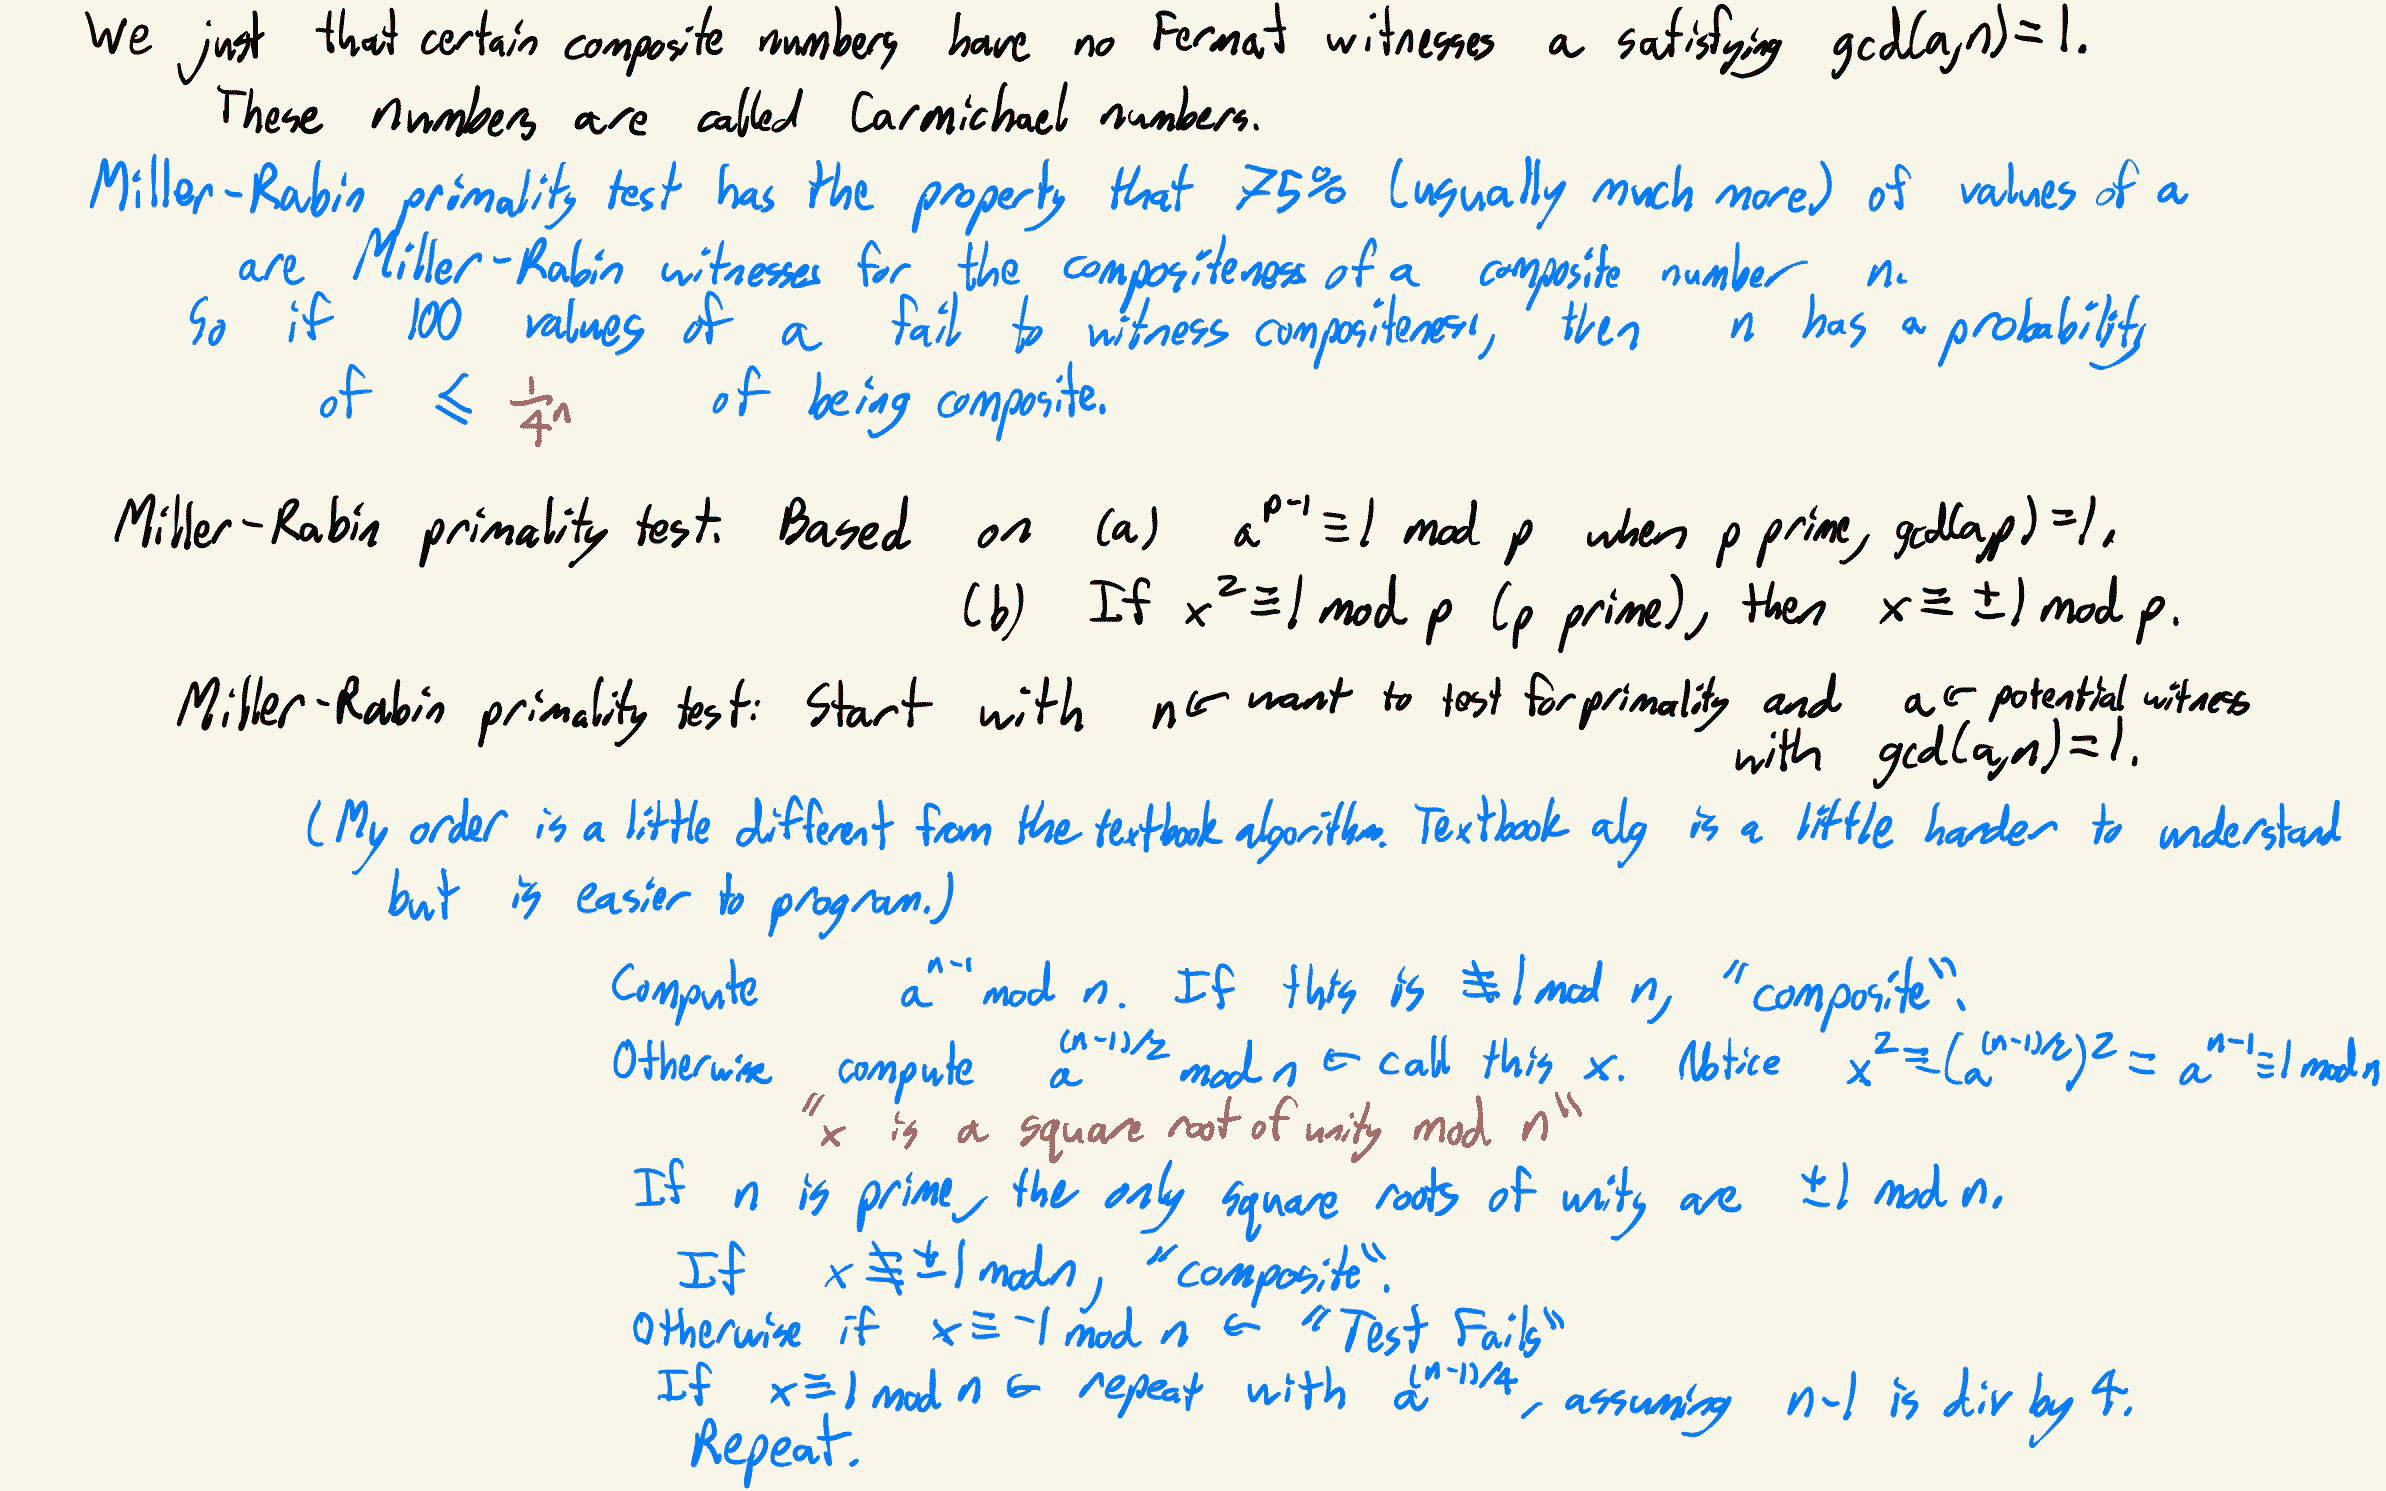 We just that certain composite numbers have no Fermat witnesses a satisfying gcd(a,n)=1.
These numbers are called Carmichael numbers.
Miller-Rabin primality test has the property that 75% (usually much more) of values of a
are Miller-Rabin witnesses for the compositeness of a composite number n.
So if 100 values of a fail to witness compositeness, then n has a probability
of ≤ 1/4^n of being composite.
Miller-Rabin primality test. Based on (a) a^(p-1) ≡ 1 mod p when p prime, gcd(a,p)=1.
(b) If x² ≡ 1 mod p (p prime), then x ≡ ±1 mod p.
Miller-Rabin primality test: Start with n ← want to test for primality and a ← potential witness
with gcd(a,n)=1.
(My order is a little different from the textbook algorithm. Textbook alg is a little harder to understand
but is easier to program.)
Compute a^(n-1) mod n. If this is ≢ 1 mod n, "composite".
Otherwise compute a^((n-1)/2) mod n ← call this x. Notice x² ≡ (a^((n-1)/2))² = a^(n-1) ≡ 1 mod n
"x is a square root of unity mod n"
If n is prime, the only square roots of unity are ±1 mod n.
If x ≢ ±1 mod n, "composite".
Otherwise if x ≡ -1 mod n ← "Test Fails"
If x ≡ 1 mod n ← repeat with a^((n-1)/4), assuming n-1 is div by 4.
Repeat.